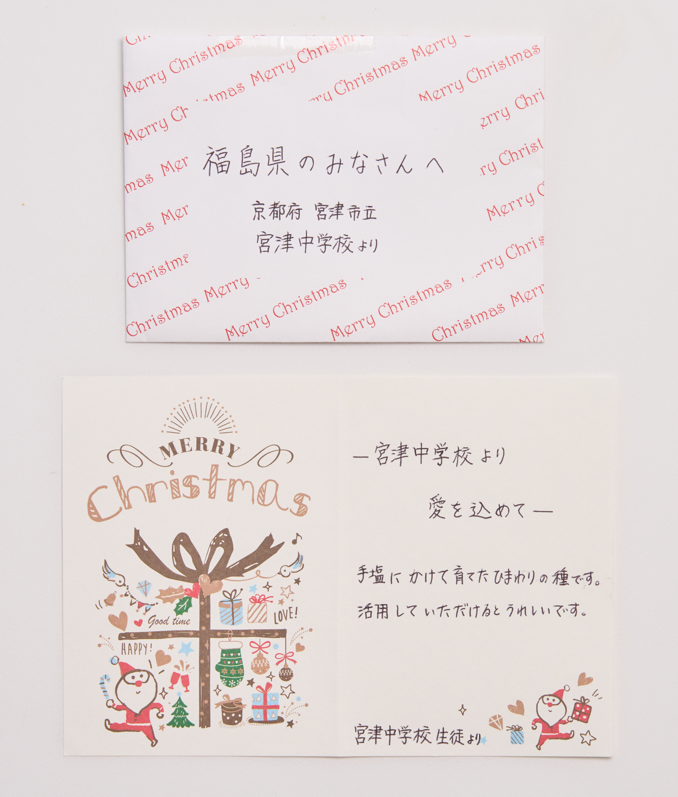 Merry Christmas
福島県のみなさんへ
京都府 宮津市立
宮津中学校より
MERRY
Christmas
Good time
LOVE!
HAPPY!
—宮津中学校より
愛を込めて—
手塩にかけて育てたひまわりの種です。
活用していただけるとうれしいです。
宮津中学校生徒より